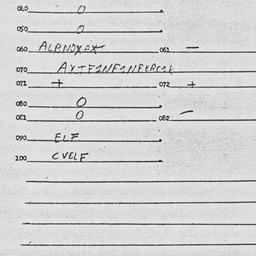 040 0
050 0
060 ALBNDXAXT 061 —
070
071 + 072 +
080 0
081 0 082 —
090 ELF
100 CVELF